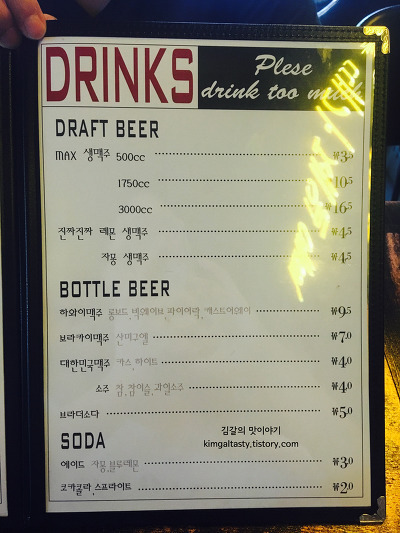 DRINKS
Plese
drink too much
DRAFT BEER
MAX 생맥주 500cc ₩3.5
1750cc ₩10.5
3000cc ₩16.5
진짜진짜 레몬 생맥주 ₩4.5
자몽 생맥주 ₩4.5
BOTTLE BEER
하와이맥주 롱보드, 빅웨이브, 파이어락, 캐스트어웨이 ₩9.5
보라카이맥주 산미구엘 ₩7.0
대한민국맥주 카스, 하이트 ₩4.0
소주 참, 참이슬, 과일소주 ₩4.0
브라더소다 ₩5.0
김갈의 맛이야기
SODA
kimgaltasty.tistory.com
에이드 자몽, 블루레몬 ₩3.0
코카콜라, 스프라이트 ₩2.0